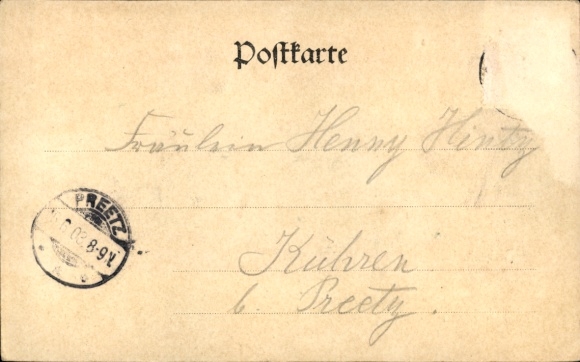 Postkarte
Fräulein Henny Hintz
PREETZ
8-9V
Kühren
b. Preetz.